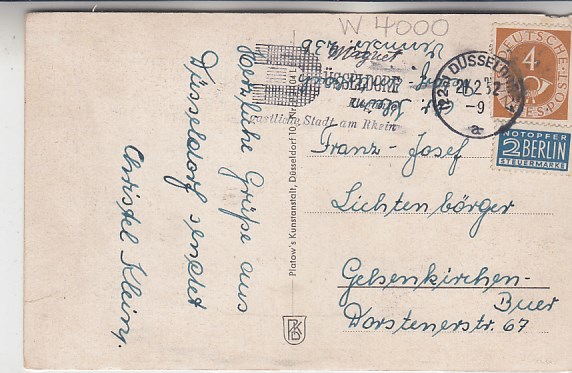 W 4000
Herzliche Grüße aus
Düsseldorf sendet
Christel Klein.
Platow's Kunstanstalt, Düsseldorf 10
DÜSSELDORF
gastliche Stadt am Rhein
DÜSSELDORF
21.2.52.-9
a
DEUTSCHE
4
POST
NOTOPFER
2 BERLIN
STEUERMARKE
Franz-Josef
Lichtenbörger
Gelsenkirchen-
Buer
Dorstenerstr. 67